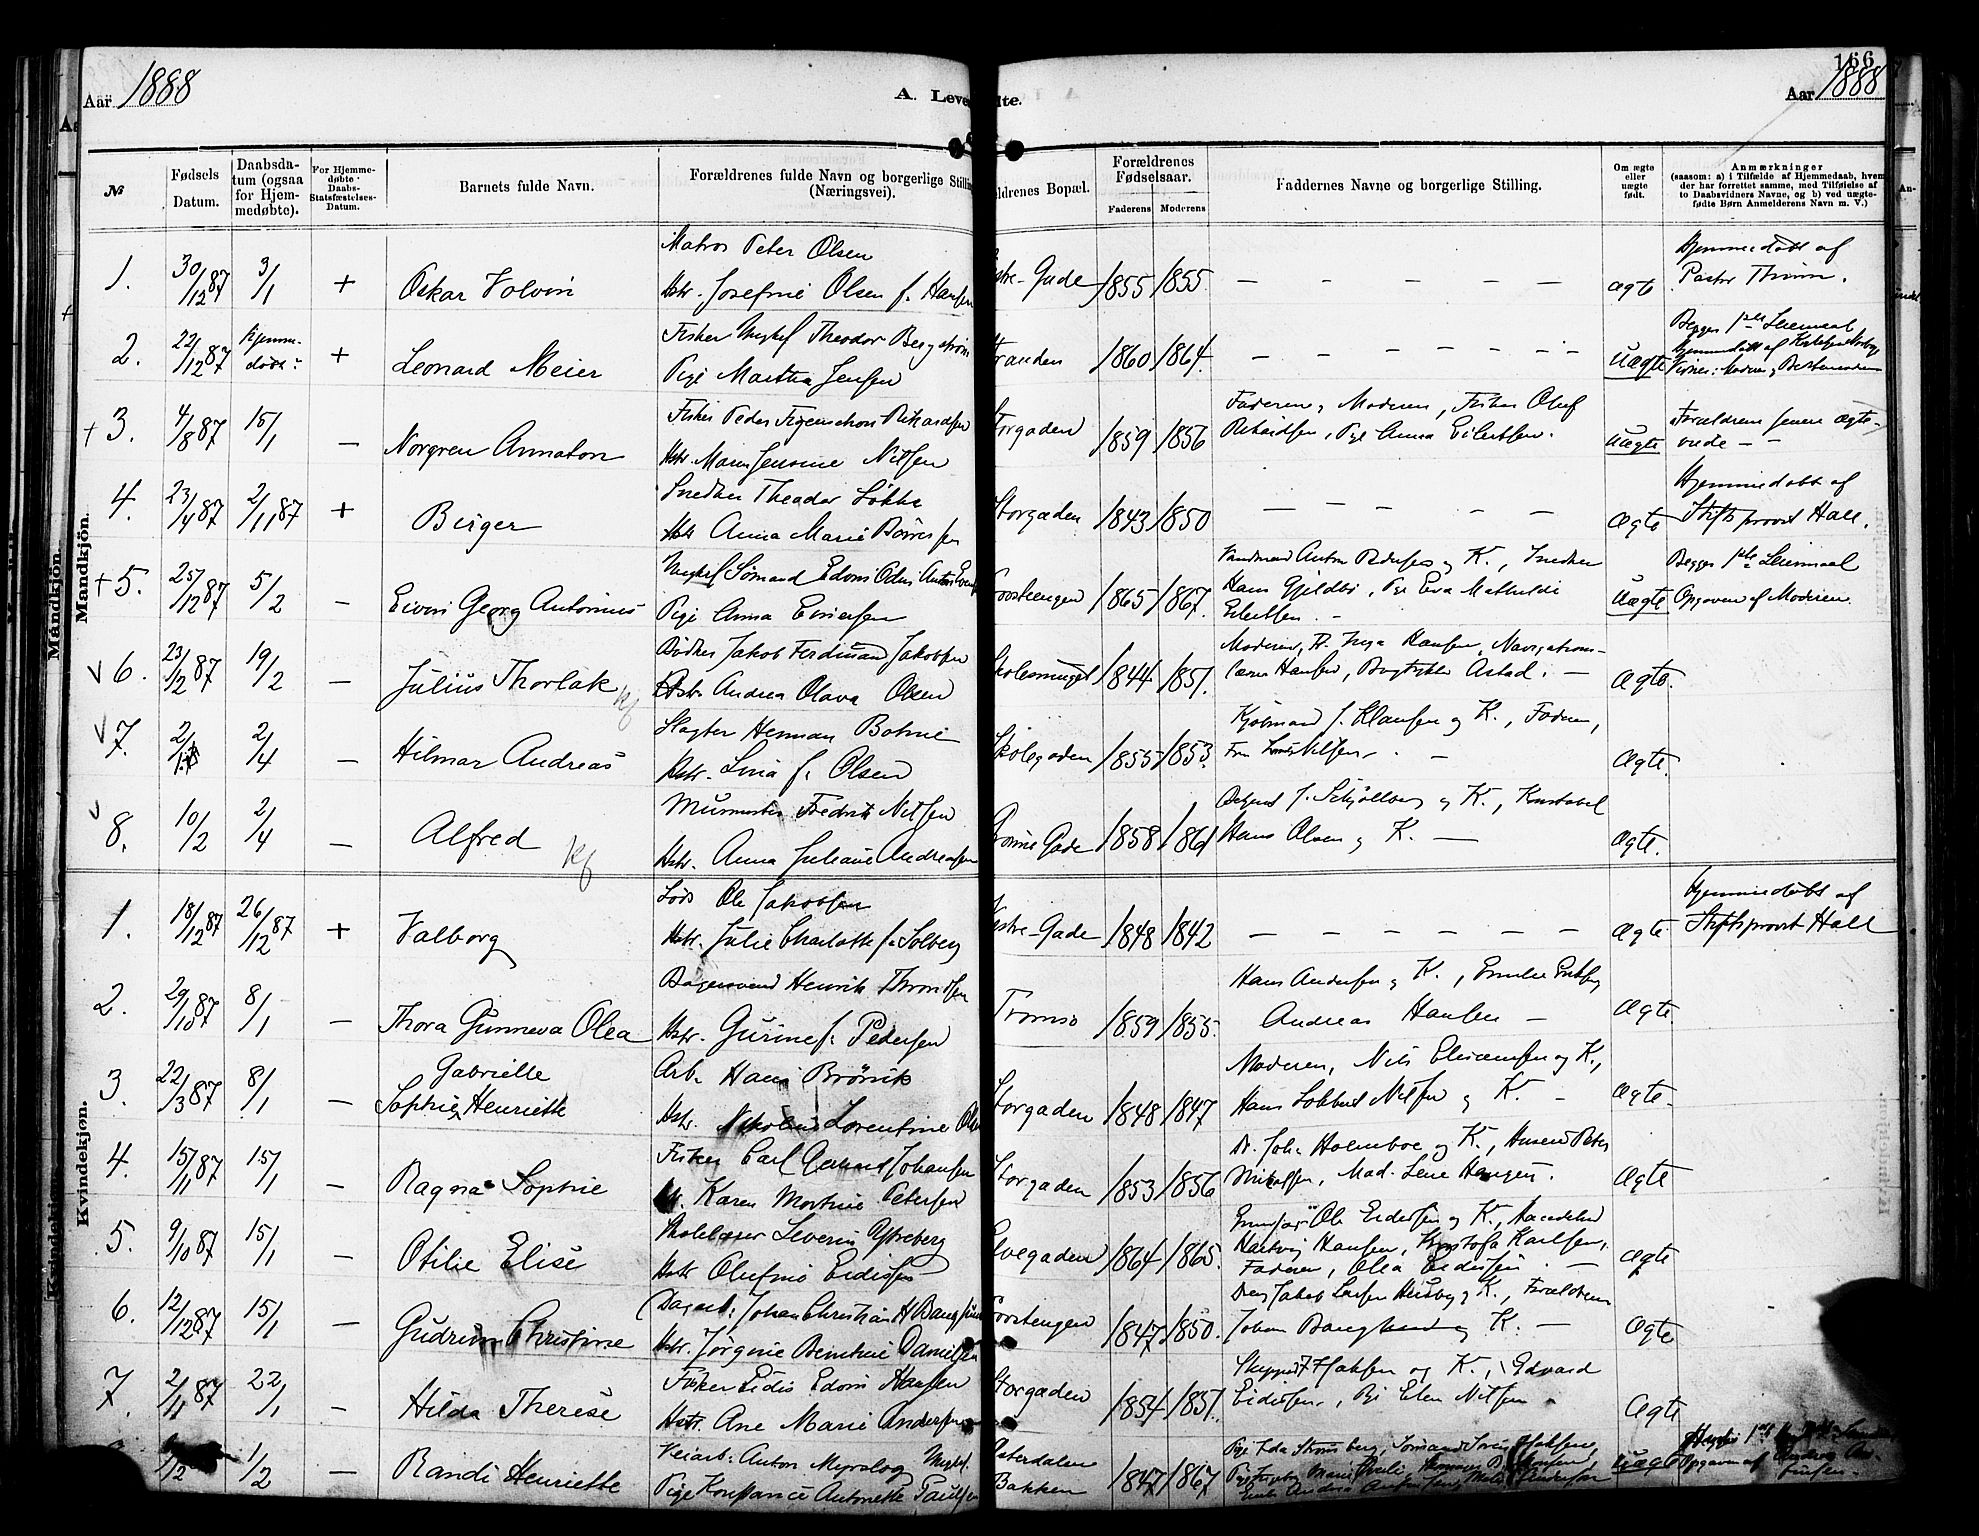 166
Aar 1888
A. Leve
dte.
Aar 1888
№
Fødsels Datum.
Daabsda-
tum (ogsaa
for Hjem-
medøbte).
For Hjemme-
døbte
Daabs-
Statsfæstelses-
Datum.
Barnets fulde Navn.
Forældrenes fulde Navn og borgerlige Stilling
(Næringsvei).
ldrenes Bopæl.
Forældrenes
Fødselsaar.
Faderens
Moderens
Faddernes Navne og borgerlige Stilling.
Om ægte
eller
uægte
født.
Anmærkninger
(saasom: a) i Tilfælde af Hjemmedaab, hvem
der har forrettet samme, med Tilføielse af
to Daabsvidners Navne, og b) ved uægte-
fødte Børn Anmelderens Navn m. V.)
Mandkjøn.
1. 30/12 87 3/1 + Oskar Volvin
Matros Peter Olsen
Hstr. Josefine Olsen f. Hansen
stre-Gade 1855 1855. — — — — — Ægte
Hjemmedøbt af
Pastor Thinn.
2. 22/12 87 Hjemme-
døbt + Leonard Meier
Fisker Ungkf Theodor Bergstrøm
Pige Martha Jensen
tranden 1860 1864. — — — — — Uægte
Begges 1ste Leiermaal
Hjemmedøbt af
3. 4/8 87 15/1 — Norgren Annaton
Fisker Peder Figenschou Rikardsen
Hstr. Maren Jensine Nilsen
torgaden 1859 1856
Faderen, Moderen, Fisker Oluf
Rikardsen, Pige Anna Eilertsen.
Uægte
Forældrene senere Ægte-
viede —
4. 23/4 87 2/11 87 + Birger
Snedker Theodor Løkke
Hstr Anna Marie Børresen
Storgaden 1843 1850 — — — — Ægte
Hjemmedøbt af
Stiftsprovst Hall.
+5. 25/12 87 5/2 — Eivin Georg Antonius
Ungkf Sømand Edvin Odin Anton
Pige Anna Einersen
orsteengen 1865 1867.
Anton Pedersen og K., Snedker
Hans Gjeldbo, Pige Eva Mathilde
Eilertsen. —
Uægte
Begges 1ste Leiermaal
Opgaven af Moderen.
v6. 23/12 87 19/2 — Julius Thorlak
Bødker Jakob Ferdinand Jakobsen
Hstr. Andrea Olava Olsen
kolesmuget 1844 1851.
Moderen, Fr. Inga Hansen, Navigations-
lærer Hansen, Bogtrykker Astad. —
Ægte.
v7. 2/1 2/4 — Hilmar Andreas
Slagter Herman Bothne
Hstr. Lina f. Olsen
Skolegaden 1855 1853.
Kjøbmand J. Klausen og K., Faderen,
Fru Nilsen. —
Ægte.
v8. 10/2 2/4 — Alfred Kf
Murmester Fredrik Nilsen
Hstr. Anna Juliane Andreassen
Grønne Gade 1858 1861
J. Schjølberg og K., Konstabel
Hans Olsen og K. —
Ægte.
Kvindekjøn.
1. 18/12 87 26/12 87 + Valborg
Lods Ole Jakobsen
Hstr. Julie Charlotte f. Solberg
stre-Gade 1848 1842 — — — — — — Ægte
Hjemmedøbt af
Stiftsprovst Hall
2. 29/10 87 8/1 — Thora Gunneva Olea
Bagersvend Henrik Throndsen
Hstr. Gurine f. Pedersen
Tromsø 1859 1855.
Hans Andersen og K., Emilie
Andreas Hansen —
Ægte.
3. 22/3 87 8/1 — Gabrielle
Sophie Henriette
Arb. Hans Brønvik
Hstr. Nikoline Lorentine
Storgaden 1848 1847
Moderen, Nils Eliasensen og K.,
Hans Lobbert Nilsen og K. —
Ægte.
4. 15/11 87 15/1 — Ragna Sophie
Fisker Carl Gerhard Johansen
Karen Mortine Petersen
torgaden 1853 1856
Dr. Joh. Holmboe og K., Peter
Mikalsen, Mad. Lene Hangen.
Ægte
5. 9/10 87 15/1 — Otilie Elise
Skolelærer Severin Ytreberg
Hstr Olufine Eidissen
lvegaden 1864 1865.
Ole Eidissen og K., Handelsb
Hartvig Hansen, Kristofa Karlsen,
Faderen, Olea Eidissen. —
Ægte
6. 12/12 87 15/1 — Gudrun Christine
Dagarb. Johan Christian H Bang
Hstr. Jørgine Berntine Danielsen
orstengen 1847 1850.
Jakob Larsen Husby og K., Forældrene
Johan og K. —
Ægte
7. 2/11 87 22/1 — Hilda Therese
Fisker Eidis Edvin Hansen
Hstr. Ane Marie Andersen
torgaden 1854 1851.
Skipper F. Isaksen og K., Edvard
Eidissen, Pige Elen Nilsen
Ægte
1/2 — Randi Henriette
Veiarb. Anton Myrslog Ungkf.
Pige Konstance Antonette Paulsen
sterdalen
Bakken 1847 1867
Pige Ida Strømberg, Sømand
Uægte
Opgaven af